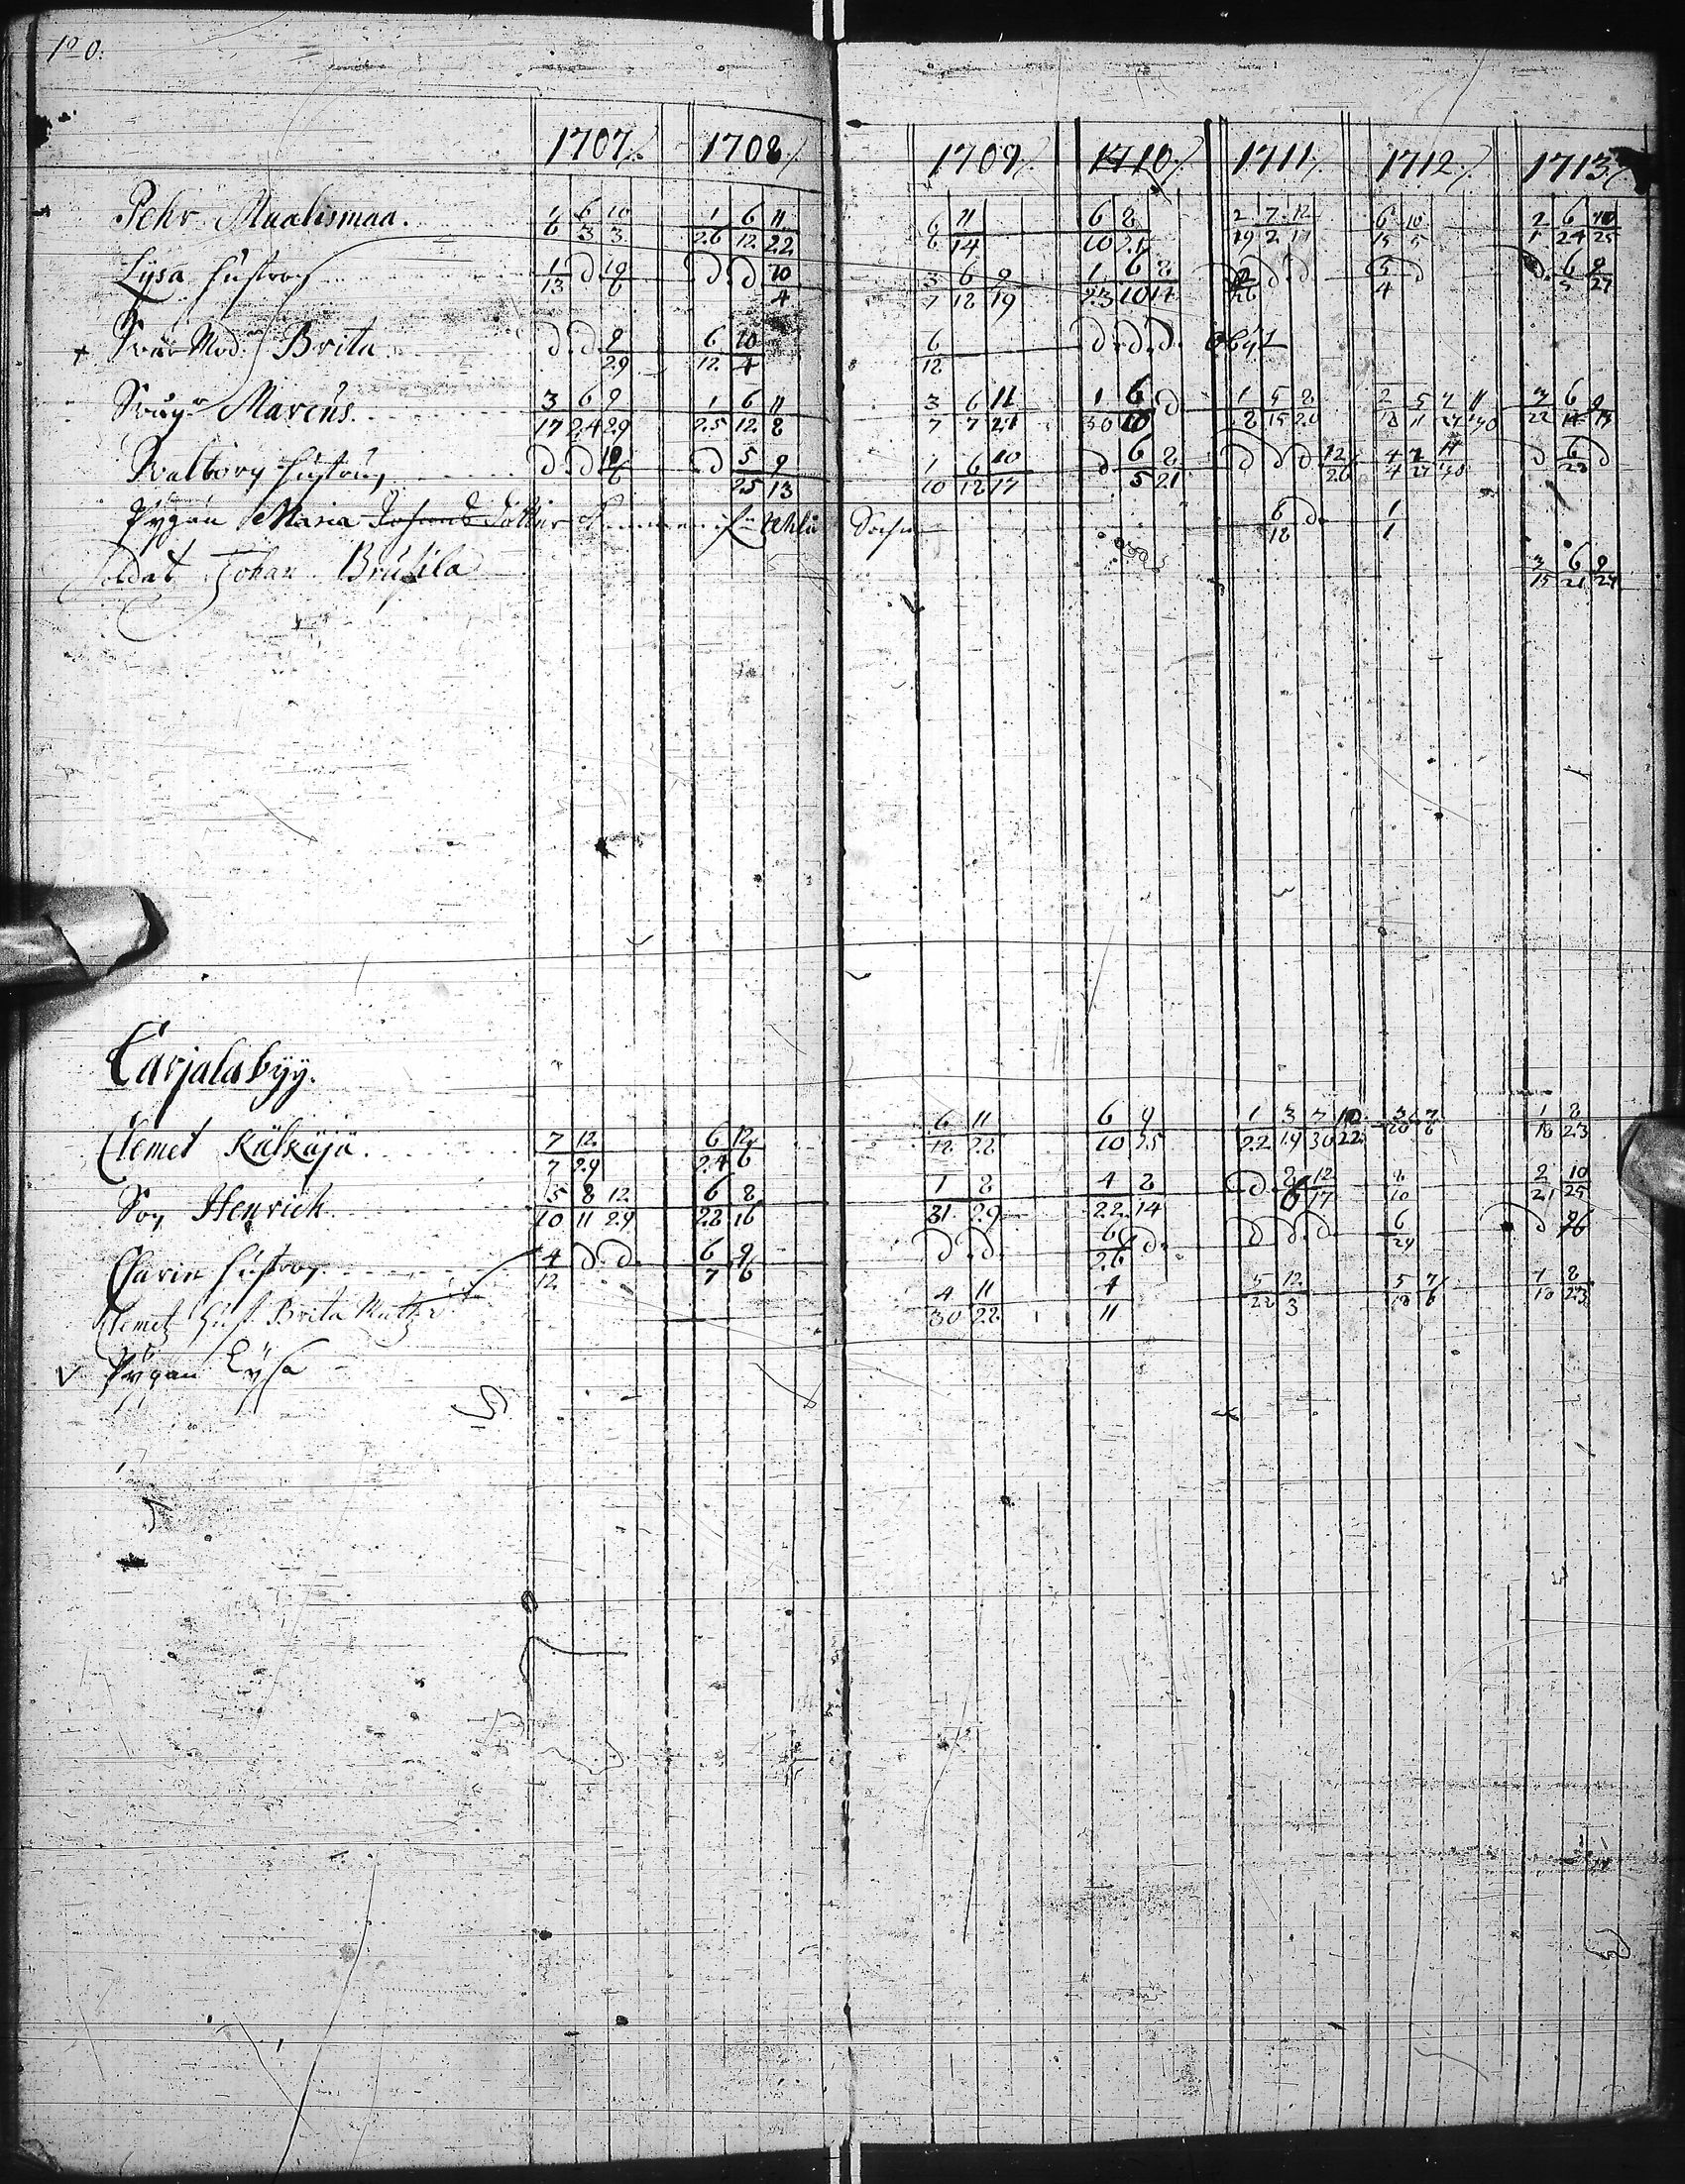 1707 1708 1709 1710 1711 1712 1713
Pehr Maalismaa. 1/6 6/3 10/3 1/26 6/12 11/22 6/6 11/14 6/10 8/21 2/19 7/2 12/11 6/15 10/5 2/1 6/24 10/25
Lÿsa hustru 1/13 d. 10/6 d. d. 10/4 3/7 6/18 9/19 1/23 6/10 8/14 d. d. 5/4 d 6/5 9/27
+ Svär Mod. Brita d. d. 9/29 6/12 10/4 6/12 d. d. d.
Svåg.r Marcus. 3/17 6/24 9/29 1/25 6/12 11/8 3/7 6/7 11/21 1/30 6/10 d 1/8 5/15 8/20 2/18 5/11 7/27 11 3/22 6 9
Walborg hustru d. d. 10/6 d 5/25 9/13 1/10 6/12 10/17 d 6/5 8/21 d d d 12/26 4/4 7/27 11 d 6/23 d
Pygan Maria Sochn 6/18 d. 1/1
Soldat Johan Brusila 3/15 6/21 9/27
Carjalabÿÿ.
Clemet Kälkäjä 7/7 12/29 6/24 12/6 6/12 11/22 6/10 9/25 1/22 3/19 7/30 10/22 3/20 7/6 1/18 8/23
Son Henrich 5/10 8/11 12/29 6/28 8/16 1/31 8/29 4/22 8/14 d. 8/6 12/17 8/10 2/21 10/25
Charin hustru 4/12 d. d. 6/7 9/6 d. d. 6/26 d. d d. d. 6/29 d
Clemetz hust. Brita Matz.r 4/30 11/22 4/11 5/22 12/3 5/18 7/6 1/18 8/23
Pygan Lÿsa